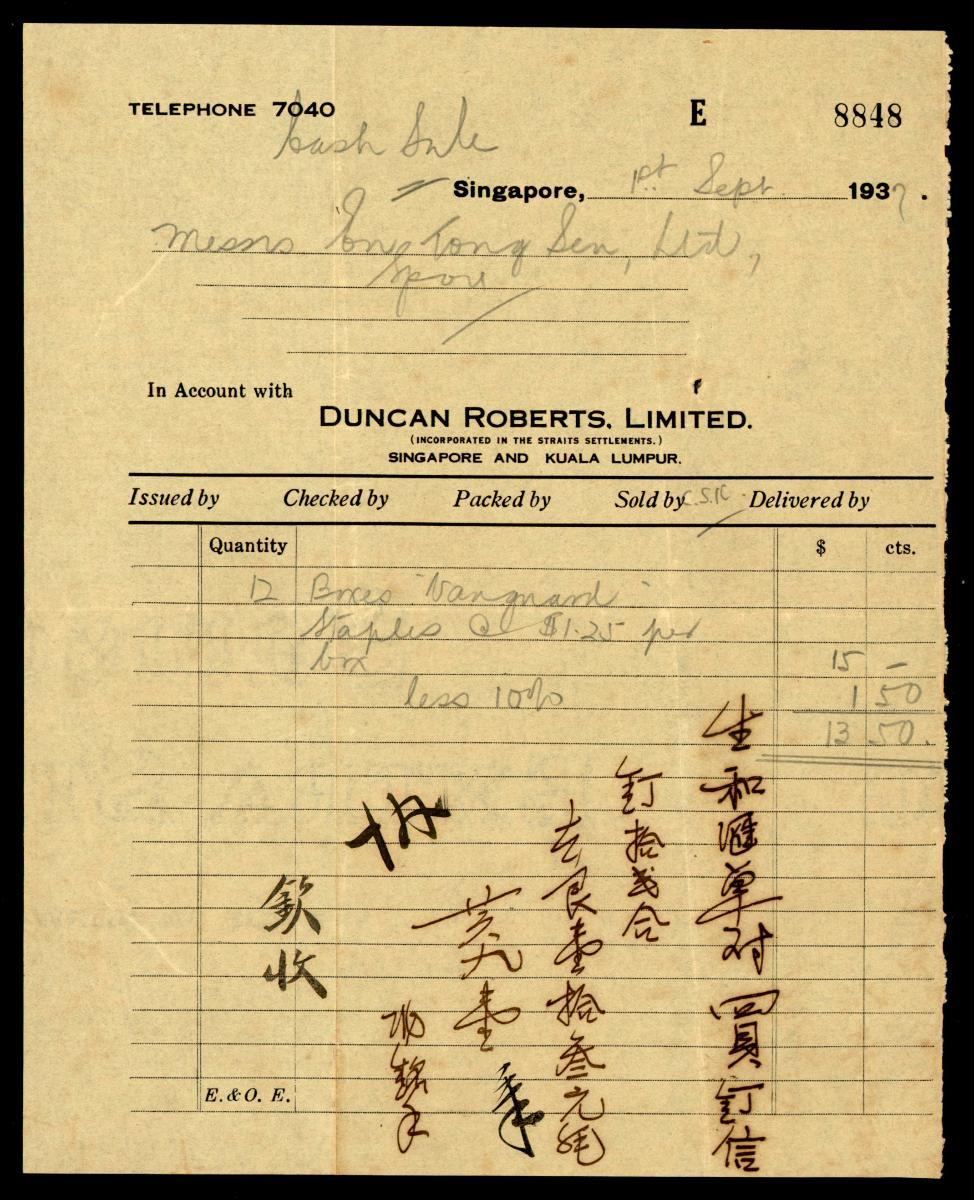 TELEPHONE 7040
E 8848
Cash Sale
Singapore, 1st Sept. 1937.
Messrs Eng Tong Sen, Ltd,
Spore
In Account with
DUNCAN ROBERTS, LIMITED.
(INCORPORATED IN THE STRAITS SETTLEMENTS.)
SINGAPORE AND KUALA LUMPUR.
Issued by Checked by Packed by Sold by C.S.K Delivered by
Quantity $ cts.
12 Boxes "Vanguard"
Staples @ $1.25 per
box 15 —
less 10% 1 50
13 50.
生和匯單对買釘信
釘拾弍合
去艮壹拾叁元
英九壹
欽收
E. & O. E.